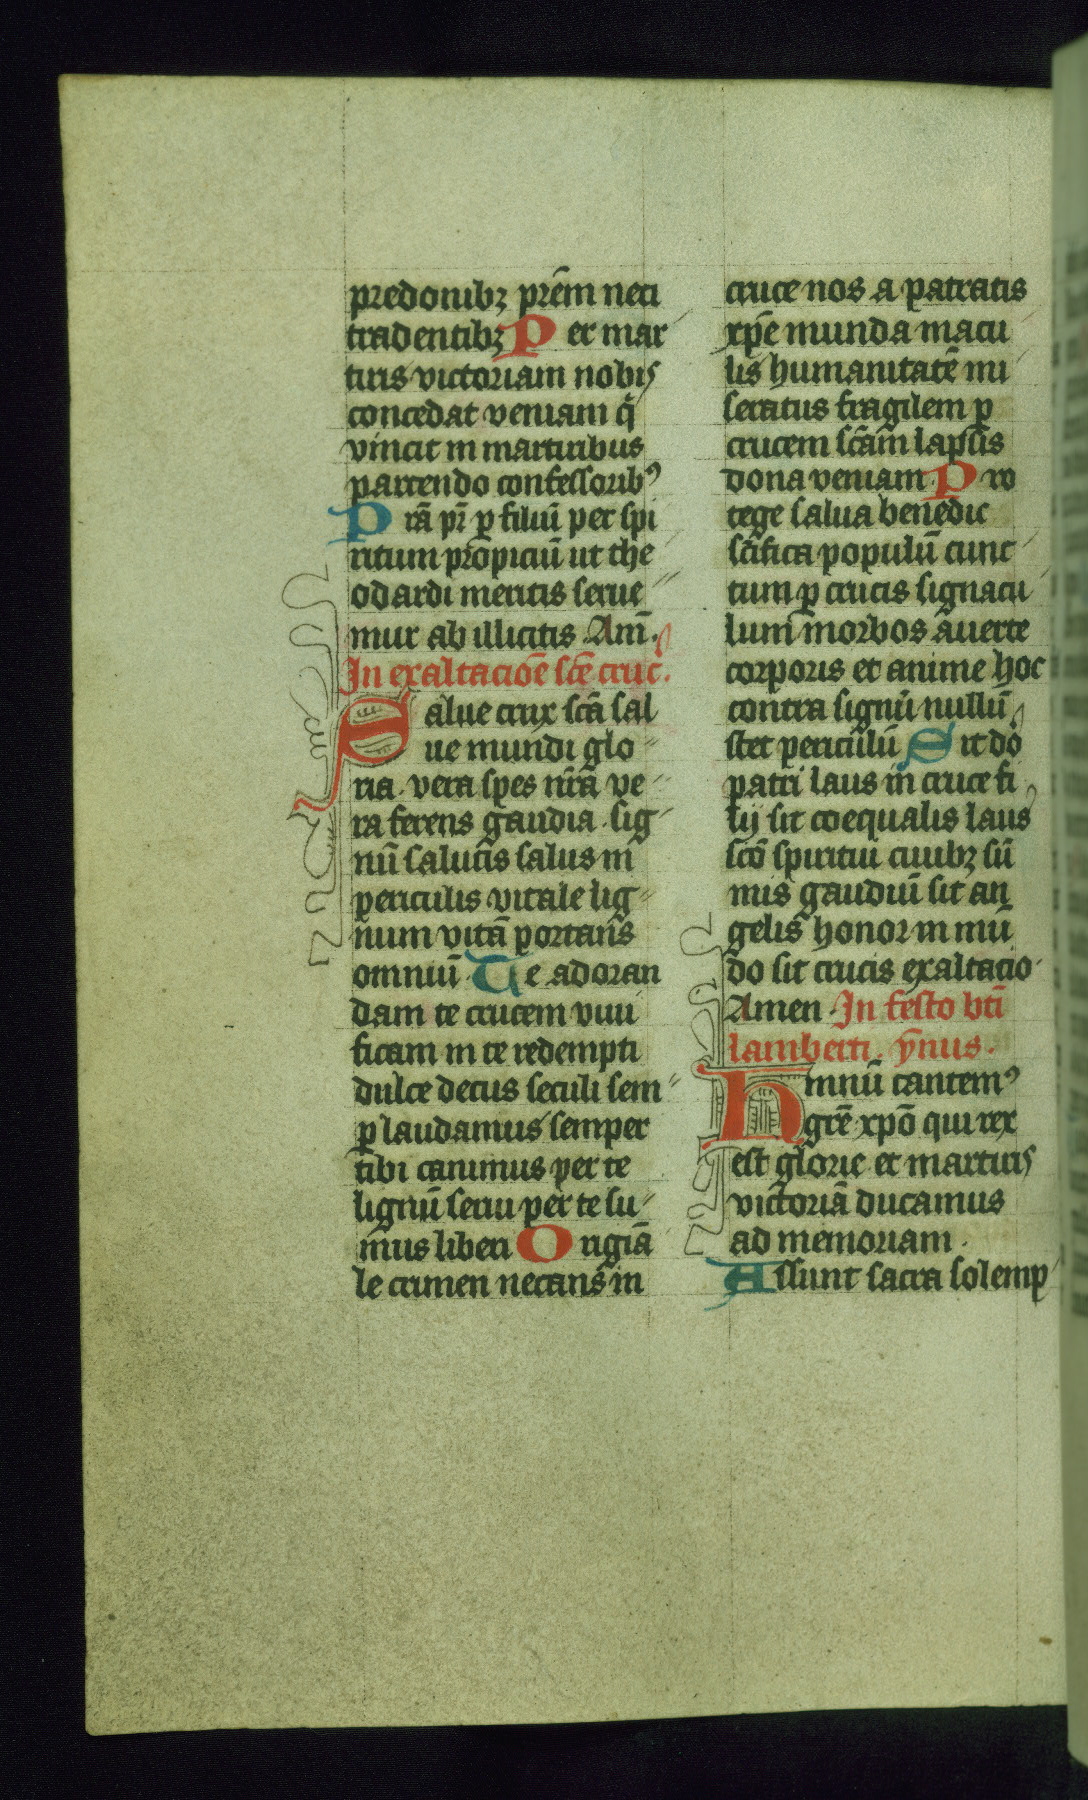 predonibꝫ pr̄em neci
tradentibꝫ Per mar
tiris victoriam nobis
concedat veniam q̄
vincit in martiribus
parcendo confessoribꝰ
Prā pr̄ ꝑ filiū per spi
ritum propiciū ut the
odardi meritis serue
mur ab illicitis Am̄.
In exaltacioē scē cruc̄.
Salue crux scā sal
ue mundi glo
ria. vera spes nr̄a ve
ra ferens gaudia. sig
nū salutis salus in
periculis vitale lig
num vitā portans
omniū Te adoran
dam te crucem viui
ficam in te redempti
dulce decus seculi sem
ꝑ laudamus semper
tibi canimus per te
lignū serui per te su
mus liberi Origīa
le crimen necans in
cruce nos a patratis
xp̄e munda macu
lis humanitatē mi
seratus fragilem ꝑ
crucem scām lapsis
dona veniam. Pro
tege salua benedic
scīfica populū cunc
tum ꝑ crucis signacu
lum morbos auerte
corporis et anime hoc
contra signū nullū
stet periculū Sit do
patri laus in cruce fi
lij sit coequalis laus
scō spiritui ciuibꝫ sū
mis gaudiū sit an
gelis honor in mū
do sit crucis exaltacio
Amen. In festo bt̄i
lamberti. ymnus.
Hmnū cantemꝰ
grē xpō qui rex
est glorie et martiris
victoriā ducamus
ad memoriam.
Assunt sacra solemp